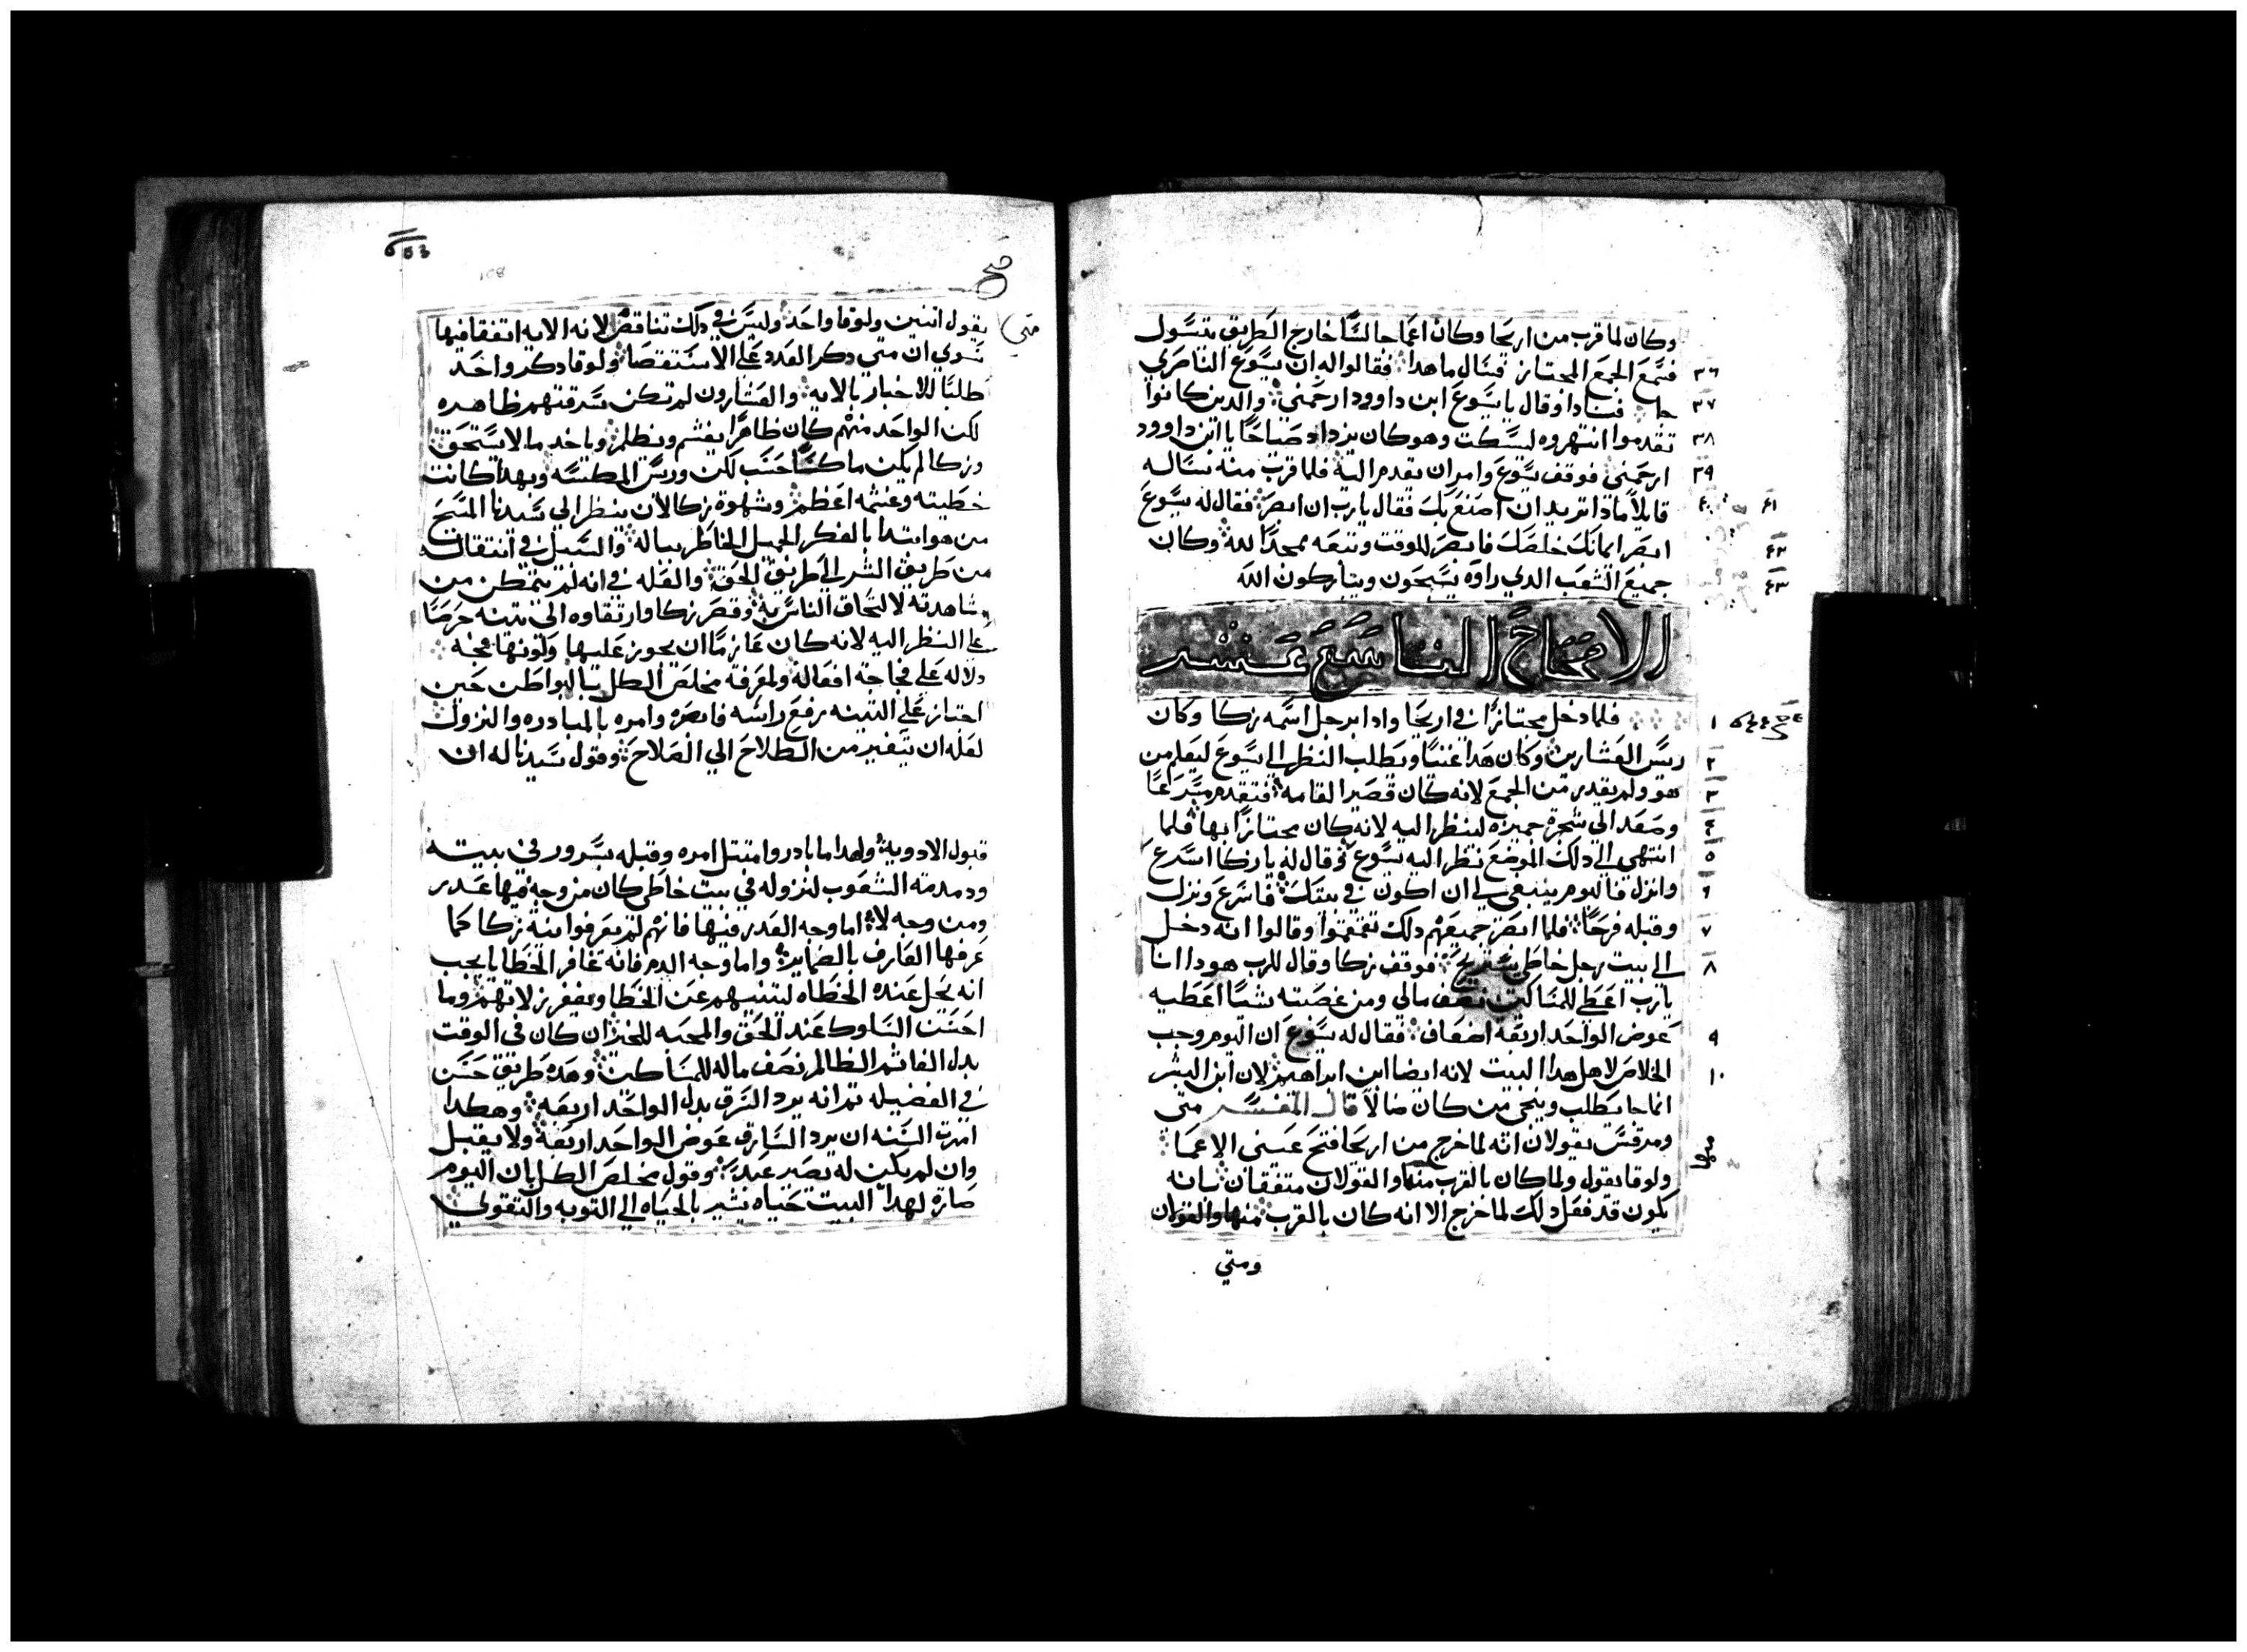 وكان لما قرب من اريحا وكان اعما جالسًا خارج الطريق يتسول
فسمع الجمع المجتاز فسال ما هدا فقالوا له ان يسوع الناصري
جا فنادا وقال يا يسوع ابن داوود ارحمني والدين كانوا
تقدموا انتهروه ليسكت وهو كان يزداد صياحًا يا ابن داوود
ارحمني فوقف يسوع وامر ان يقدم اليه فلما قرب منه سـاله
قايلاً مادا تريد ان اصنع بك فقال يارب ان ابصر فقال له يسوع
ابصر ايمانك خلصك فابصر للوقت وتبعه ممجدًا لله وكان
جميع الشعب الدي راوه يسبحون ويباركون الله
الاصحاح التاسع عشر
فلما دخل مجتازًا في اريحا وادا برجل اسمه زكا وكان
ريس العشارين وكان هدا غنيًا ويطلب النظر الي يسوع ليعلم من
هو ولم يقدر من الجمع لانه كان قصير القامه فتقدم مسرعًا
وصعد الي شجرة جميزه لينظر اليه لانه كان مجتازًا بها فلما
انتهي الي دلك الموضع نظر اليه يسوع وقال له يا زكا اسرع
وانزل فاليوم ينبغي لي ان اكون في بيتك فاسرع ونزل
وقبله فرحًا فلما ابصر جميعهم دلك تقمقموا وقالوا انه دخل
الي بيت رجل خاطي يستريح فوقف زكا وقال للرب هودا انا
يارب اعطي للمساكين نصف مالي ومن غصبته شيًا اعطيه
عوض الواحد اربعه اضعاف فقال له يسوع ان اليوم وجب
الخلاص لاهل هدا البيت لانه ايضا ابن ابراهيم لان ابن البشر
انما جا يطلب وينجي من كان ضالًا قال المفسر متي
ومرقس يقولان انه لما خرج من اريحا فتح عيني الاعما
ولوقا يقول ولما كان بالقرب منها والقولان متفقان بانه
يكون قد فعل دلك لما خرج الا انه كان بالقرب منها والقولان
ومتي
متي
يقول اتنين ولوقا واحد وليس في دلك تناقض لانه الايه اتفقا فيها
سوي ان متي دكر العدد علي الاستقصا ولوقا دكر واحد
طلبًا للاخبار بالايه والعشارون لم تكن سرقتهم ظاهره
لكن الواحد منهم كان ظاهرًا يغشم ويظلم وياخد ما لا يستحق
وزكا لم يكن ماكسًا حسب لكن وريس المكسه وبهدا كانت
خطيته وغشمه اعظم وشهوة زكا لان ينظر الي سيدنا المسيح
من هو ابتدا بالفكر الجميل الخاطر بباله والسبيل في انتقاله
من طريق الشر الي طريق الحق والعله في انه لم يتمكن من
مشاهدته لالتحاق الناس به وقصر زكا وارتقاوه الي تينه حرصًا
علي النظر اليه لانه كان عازمًا ان يجوز عليها ولكونها فجه
دلاله علي فجاجة افعاله ولمعرفة مخلص الكل بالبواطن حين
اجتاز علي التينه رفع راسه فابصره وامره بالمبادره والنزول
لعله ان يتغير من الطلاح الي الصلاح وقول سيدنا له ان
قبول الادويه ولهدا ما بادر وامتثل امره وقبله بسرور في بيته
ودمدمة الشعوب لنزوله في بيت خاطي كان من وجه فيها عدر
ومن وجه لا اما وجه العدر فيها فانهم لم يعرفوا نية زكا كما
عرفها العارف بالضماير واما وجه الدم فانه غافر الخطايا يجب
انه يحل عنده الخطاه ليتنيهم عن الخطا ويغفر زلاتهم وما
احسن السلوك عند الحق والمحبه للخير ان كان في الوقت
بدل الغاشم الظالم نصف ماله للمساكين وهده طريق حسن
في الفضيله تم انه يرد السرق بدل الواحد اربعه وهكدا
امرت السنه ان يرد السارق عوض الواحد اربعه ولا يقبل
وان لم يكن له يصير عبد وقول مخلص الكل بان اليوم
صارة لهدا البيت حياه يشير بالحياه الي التوبه والتقوي